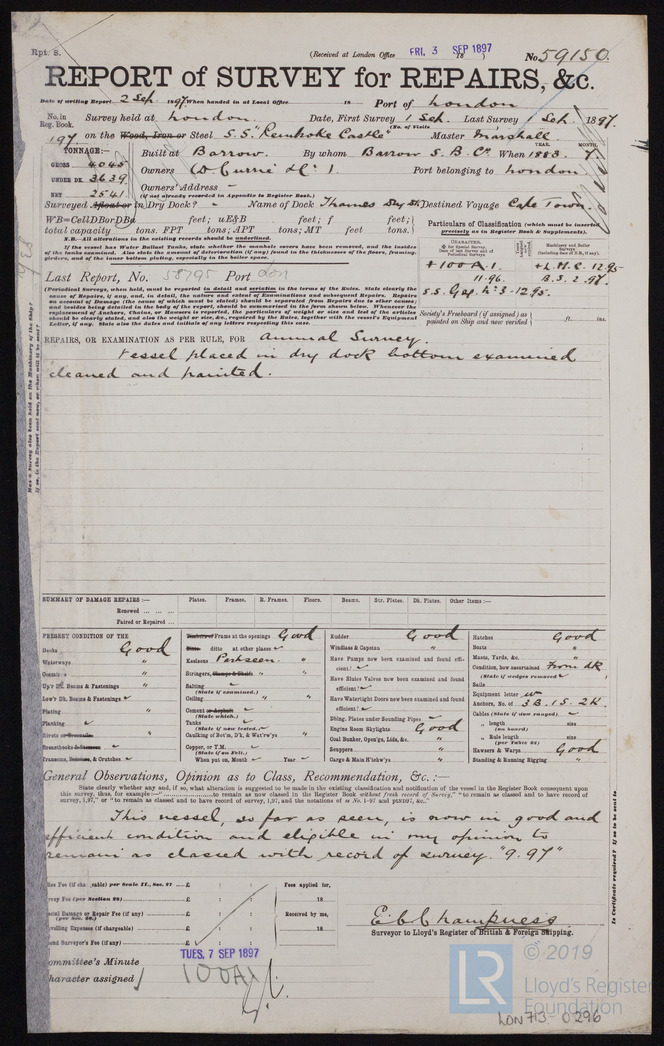 Rpt. 8.
(Received at London Office FRI. 3 SEP 1897 18 )
No. 59150.
REPORT of SURVEY for REPAIRS, &c.
Date of writing Report 2 Sep. 1897 When handed in at Local Office 18 Port of London
No. in Reg. Book. Survey held at London. Date, First Survey 1 Sep. Last Survey 1 Sep. 1897.
(No. of Visits
197 on the Wood, Iron or Steel S.S. "Pembroke Castle" Master Marshall
TONNAGE:— Built at Barrow. By whom Barrow S. B. Co. When 1883. 7. YEAR. MONTH.
GROSS 4045 Owners D. Currie & Co. Port belonging to London
UNDER DK. 3639 Owners' Address
NET 2541 (if not already recorded in Appendix to Register Book.)
Surveyed Afloat or in Dry Dock? Name of Dock Thames Dry Dk Destined Voyage Cape Town.
WB=CellDBorDBa feet; uE&B feet; f feet;
total capacity tons. FPT tons; APT tons; MT feet tons.
N.B.—All alterations in the existing records should be underlined.
If the vessel has Water Ballast Tanks, state whether the manhole covers have been removed, and the insides
of the tanks examined. Also state the amount of deterioration (if any) found in the thicknesses of the floors, framing,
girders, and of the inner bottom plating, especially in the boiler space.
Particulars of Classification (which must be inserted
precisely as in Register Book & Supplements).
CHARACTER.
for Special Survey
Date of last Survey and of
Periodical Surveys
Machinery and Boiler
Surveys
(including date of N.B., if any).
+ 100 A 1. + L.M.C. 12.95
11.96. B.S. 2.97.
S.S. Gap. No. 3 - 12.95.
Last Report, No. 58795 Port Lon
(Periodical Surveys, when held, must be reported in detail and seriatim in the terms of the Rules. State clearly the
cause of Repairs, if any, and, in detail, the nature and extent of Examinations and subsequent Repairs. Repairs
on account of Damage (the cause of which must be stated) should be separated from Repairs due to other causes;
and besides being detailed in the body of the report, should be summarised in the form shown below. Whenever the
replacement of Anchors, Chains, or Hawsers is reported, the particulars of weight or size and test of the articles
should be clearly stated, and also the weight or size, &c., required by the Rules, together with the vessel's Equipment
Letter, if any. State also the dates and initials of any letters respecting this case.
Society's Freeboard (if assigned) as
painted on Ship and now verified ft. ins.
REPAIRS, OR EXAMINATION AS PER RULE, FOR Annual Survey.
Vessel placed in dry dock bottom examined
cleaned and painted.
SUMMARY OF DAMAGE REPAIRS:— Plates. Frames. R. Frames. Floors. Beams. Str. Plates. Dk. Plates. Other Items:—
Renewed ... ... ...
Faired or Repaired ...
PRESENT CONDITION OF THE
Decks Good
Waterways "
Coamings "
Up'r Dk. Beams & Fastenings "
Low'r Dk. Beams & Fastenings "
Plating "
Planking
Rivets or Treenails "
Breasthooks & Stemson
Transoms, Sternson, & Crutches
Timbers or Frames at the openings Good
Ditto ditto at other places
Keelsons Part seen. "
Stringers, Clamps & Shelfs "
Salting
(State if examined.)
Ceiling " "
Cement or Asphalt
(State which.)
Tanks
(State if now tested.)
Caulking of Bot'm, D'k, & Wat'rw'ys "
Copper, or Y.M.
(State if on Felt.)
When put on, Month Year
Rudder Good
Windlass & Capstan "
Have Pumps now been examined and found efficient?
Have Sluice Valves now been examined and found efficient?
Have Watertight Doors now been examined and found efficient?
Dblng. Plates under Sounding Pipes
Engine Room Skylights Good
Coal Bunker, Open'gs, Lids, &c. "
Scuppers "
Cargo & Main H'tchw'ys "
Hatches Good
Boats "
Masts, Yards, &c. "
Condition, how ascertained From dk
(State if wedges removed)
Sails
Equipment letter W
Anchors, No. of 3B. 1S. 2K.
Cables (State if now ranged)
" length size
(on board)
" Rule length size
(per Table 22)
Hawsers & Warps Good
Standing & Running Rigging "
General Observations, Opinion as to Class, Recommendation, &c.:—
State clearly whether any and, if so, what alteration is suggested to be made in the existing classification and notification of the vessel in the Register Book consequent upon
this survey, thus, for example:—"to remain as now classed in the Register Book without fresh record of Survey," "to remain as classed and to have record of
survey, 1,97," or "to remain as classed and to have record of survey, 1,97, and the notations of ss No. 1-97 and ptND97, &c."
This vessel, so far as seen, is now in good and
efficient condition and eligible in my opinion to
remain as classed with record of survey. "9.97"
per Scale II., Sec. 27 £ : : Fees applied for,
(per Section 29) £ : : 18
Damage or Repair Fee (if any) £ : : Received by me,
Expenses (if chargeable) £ : : 18
Surveyor's Fee (if any) £ :
E.C. Champness
Surveyor to Lloyd's Register of British & Foreign Shipping.
ommittee's Minute TUES. 7 SEP 1897
haracter assigned 100A1
© 2019
LR
Lloyd's Register
Foundation
LON 713-0296